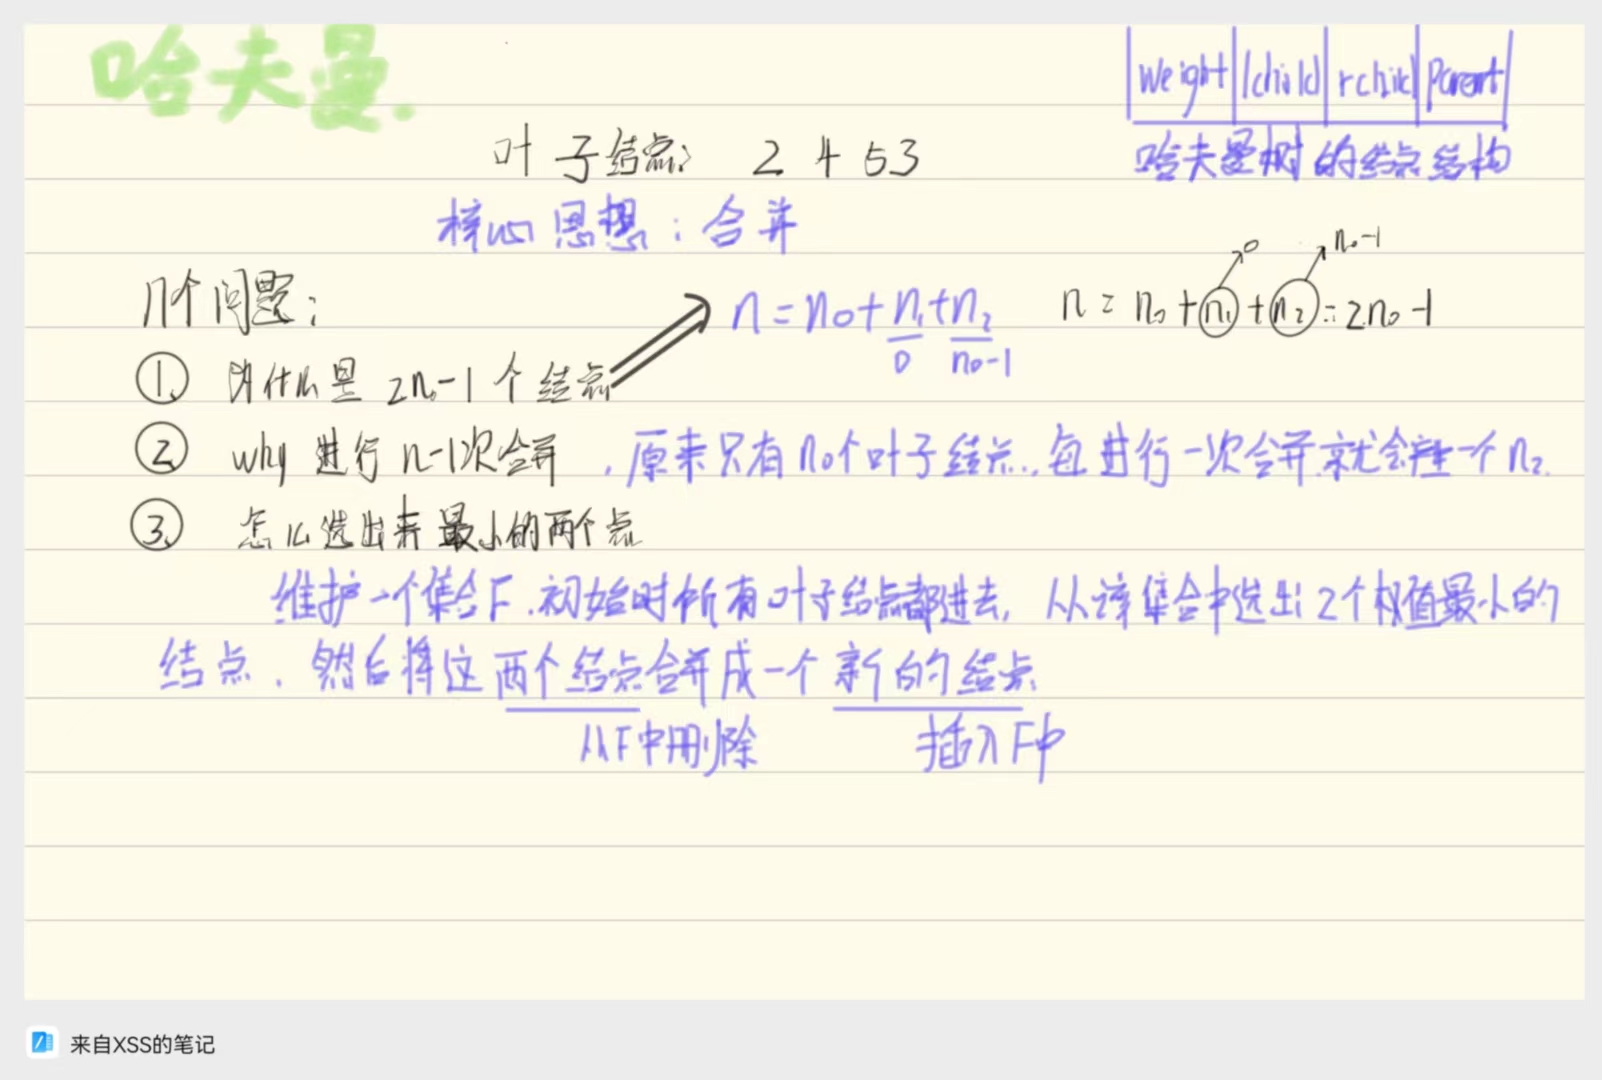 哈夫曼.
weight lchild rchild parent
哈夫曼树的结点结构
叶子结点: 2 4 5 3
核心思想:合并
几个问题:
n=n₀+n₁+n₂
0 n₀-1
n = n₀+n₁+n₂=2n₀-1
0 n₀-1
① 为什么是 2n₀-1 个结点
② why 进行 n-1次合并 , 原来只有n₀个叶子结点, 每进行一次合并就会产生一个n₂.
③ 怎么选出来最小的两个点
维护一个集合F,初始时所有叶子结点都进去, 从该集合中选出2个权值最小的
结点, 然后将这两个结点合并成一个新的结点
从F中删除 插入F中
来自XSS的笔记